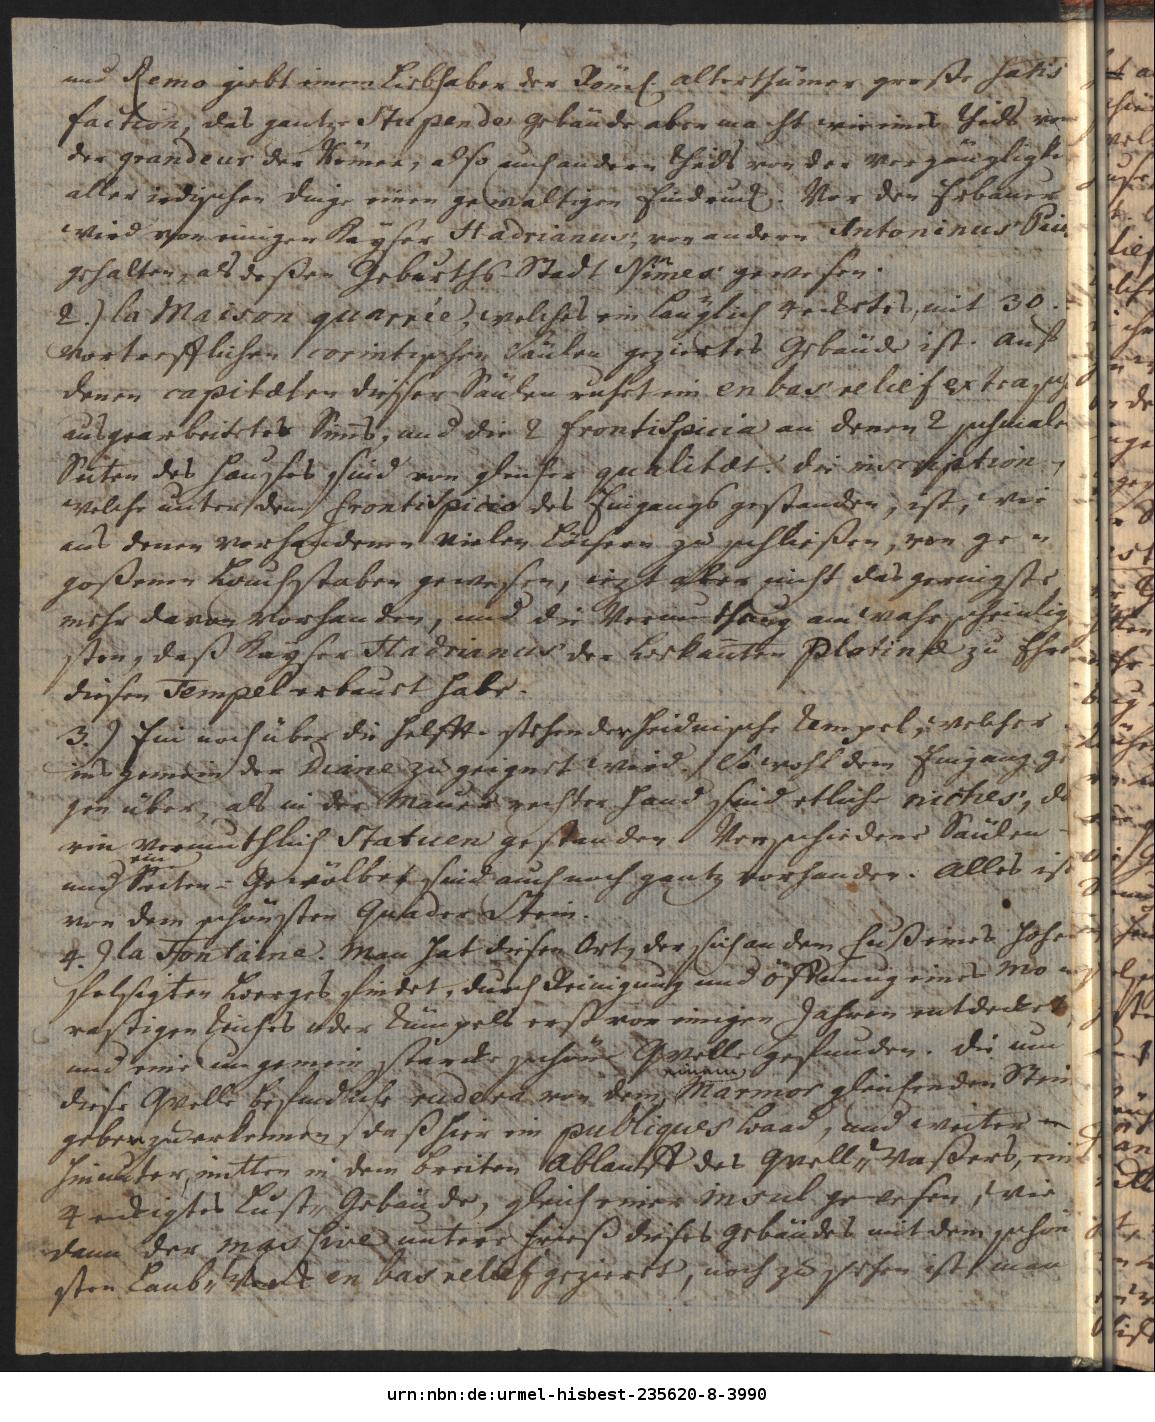 und Remo giebt einem Liebhaber der Röm. alterthümer große satis
faction, das gantze Stupende Gebäude aber macht wie eines theils von
der grandeur der Römer, also auch andern theils von der Vergänglichk
aller irdischen dinge einen gewaltigen Eindruck. Vor den Erbauer
wird von einigen Kayser Hadrianus, von andern Antoninus Pius
gehalten, als deßen Geburths-Stadt Nimes gewesen.
2.) la Maison quarrée, welches ein länglich 4eckigtes, mit 30.
vortrefflichen corintischen Säulen geziertes Gebäude ist. Auf
denen capitælen dießer Säulen ruhet ein en bas relief extra
ausgearbeitetes Sims, und die 2 frontispicia an denen 2 schmale
Seiten des Haußes sind von gleicher qualitæt. die inscription
welche unter dem frontispicio des Eingangs gestanden, ist, wie
aus denen vorhandenen vielen Löchern zu schließen, von ge
goßenen Buchstaben gewesen, iezt aber nicht das geringste
mehr davon vorhanden, und die Vermuthung am wahrscheinlig
sten, daß Kayser Hadrianus der bekanten Plotinæ zu Ehre
diesen Tempel erbauet habe.
3.) Ein noch über die helffte stehender heidnische tempel, welcher
ins gemein der Diane zugeeignet wird. So wohl dem Eingang ge
gen über, als in der Mauer rechter hand sind etliche niches, da
rin vermuthlich Statuen gestanden. Verschiedene Säulen
und ein Seiten-Gewölbe sind auch noch gantz vorhanden. Alles ist
von dem schönsten Quader Stein.
4.) la Fontaine. Man hat diesen Ort, der sich an dem Fuß eines hohe
felsigten Berges findet, durch Reinigung und öffnung eines mo
rastigen teiches oder tümpels erst vor einigen Jahren entdecket,
und eine ungemein starcke schöne Qvelle gefunden. die um
diese Qvelle befindliche rudera von einem dem Marmor gleichenden Stein
geben zu erkennen, daß hier ein publiques baad, und weiter
hinunter, mitten in dem breiten Ablauff des Qvell-Waßers, ein
4 eckigtes Lust-Gebäude, gleich einer insul gewesen, wie
dann der massive untere frieß dieses gebäudes mit dem schön
sten Laub-Werck en bas relief gezieret, noch zu sehen ist, man
urn:nbn:de:urmel-hisbest-235620-8-3990